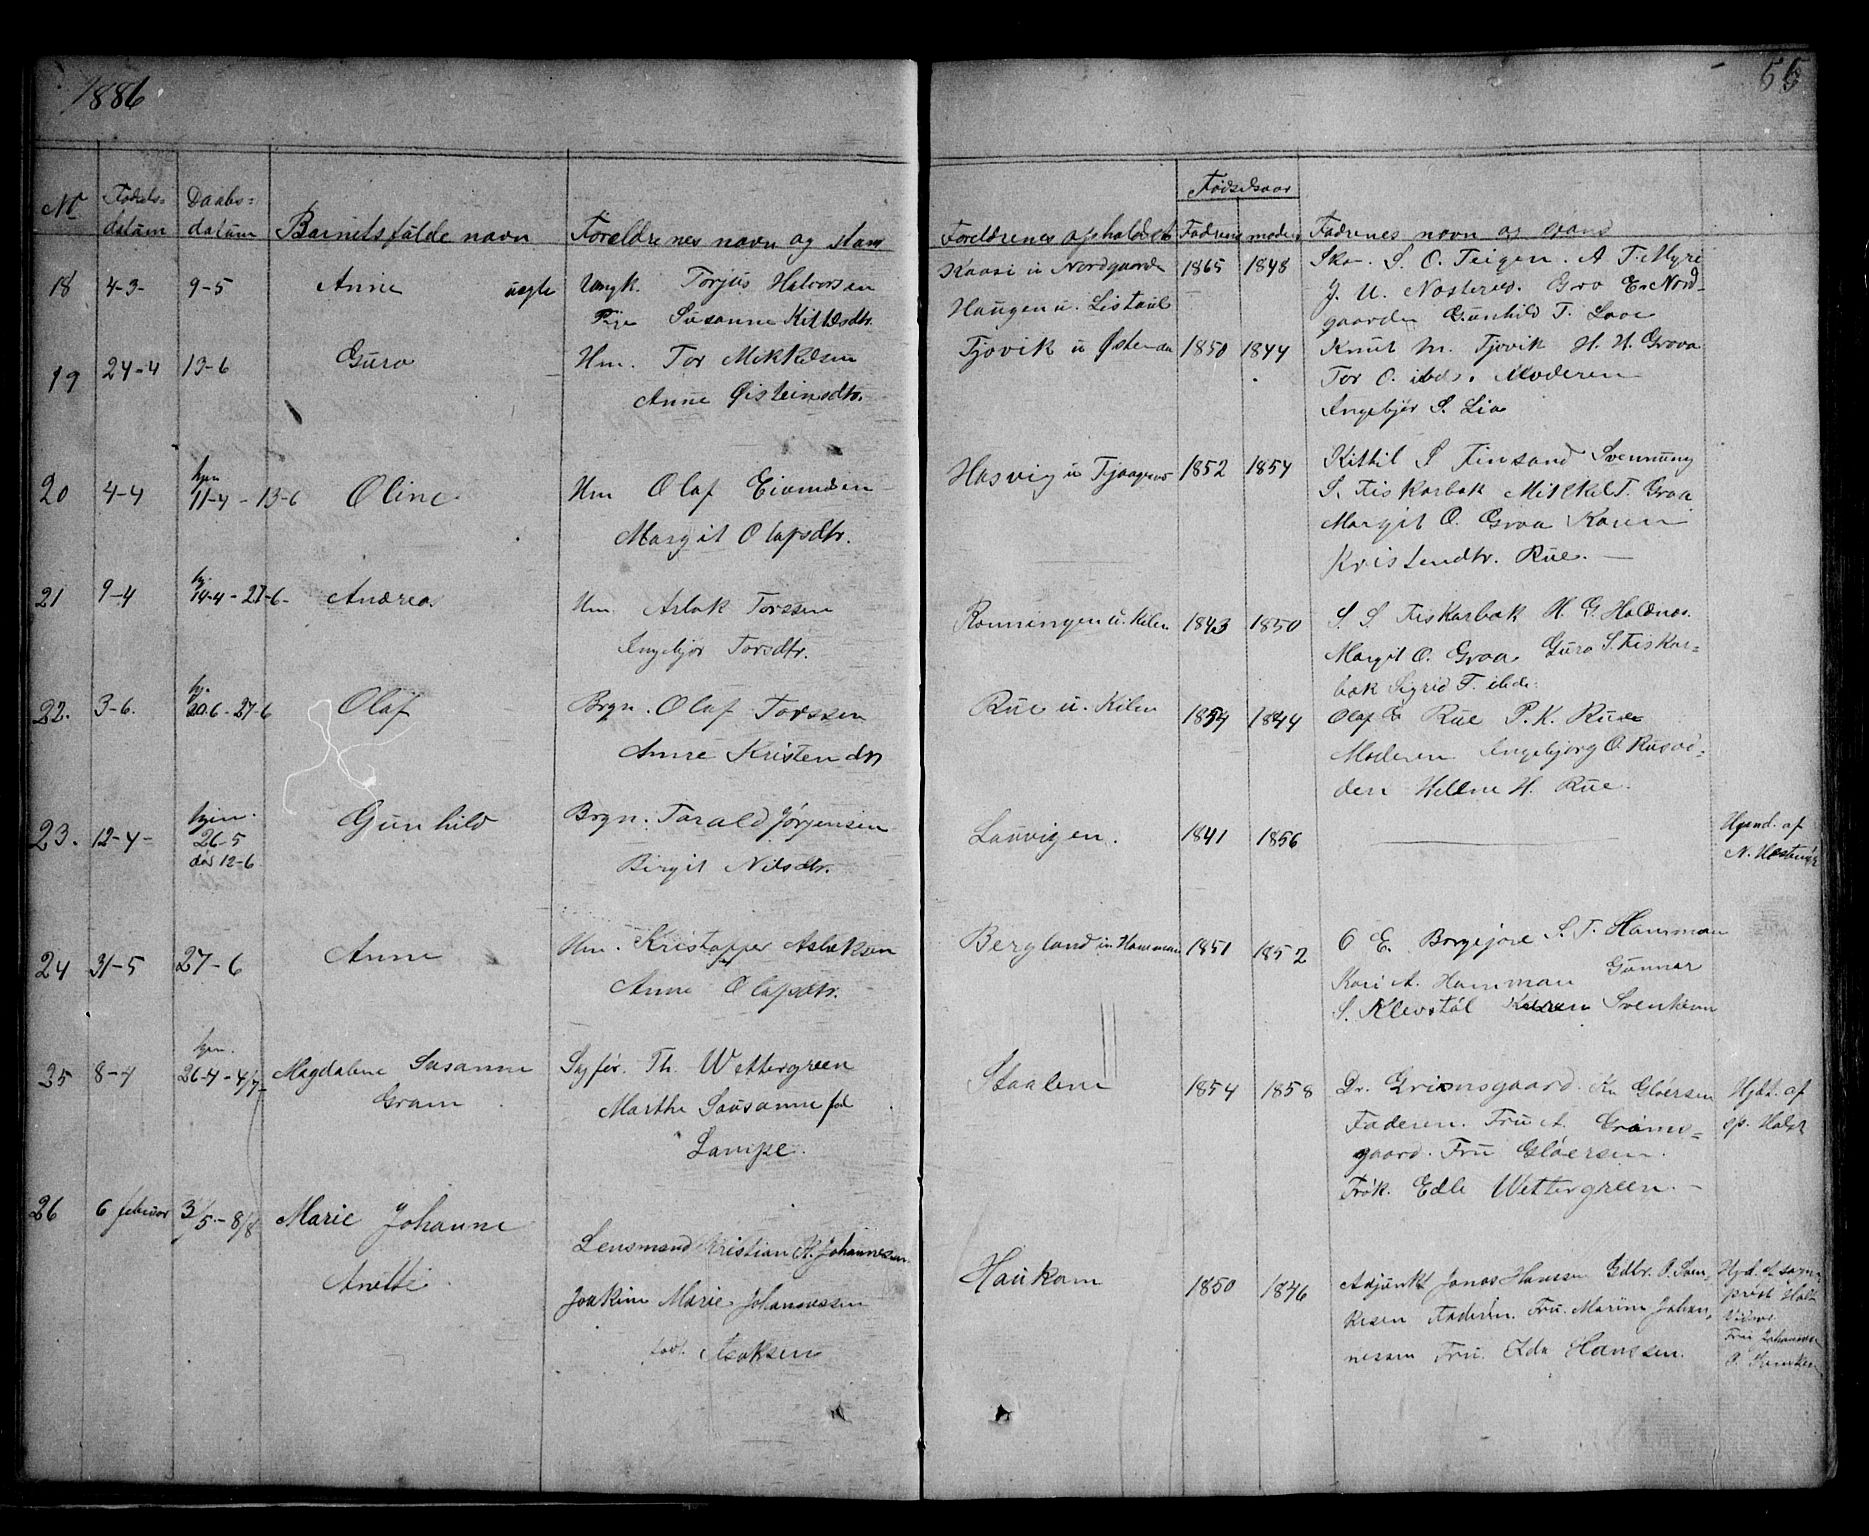 1886
55
Nr
Fødsels=
datum
Daabs=
datum
Barnets fulde navn
Foreldrenes navn og stans
Foreldrenes opholdsst
Fødselsaar
Fadrens moder
Fadrenes navn og stand
18 4-3- 9-5 Anne uægte Ungk. Torjus Halvorsen
Pige Susanne Kittilsdtr.
Kaasi u Nordgaarden
Haugen u. Listaul
1865 1848
S. O. Teigen. A T. Myri
J. U. Gro E. Nord-
gaarden Gunhild T.
19 24-4 13-6 Guro Hm. Tor Mikkelsen
Anne Øisteinsdtr.
Tjovik u 1850 1844
Knut M. Tjovik H. H. Grova
Tor O. ibds. Moderen
Angebjør S. Lia
20 4-4 hjem
11-4 - 13-6 Oline Hm Olaf Eivindsen
Margit Olafsdtr.
Hasvig u 1852 1854
Kittil S Finsand Svennung
S. Fiskarbæk Mikkel T. Groa
Margit O. Groa Karen
Kristendtr. Rue.
21 9-4 hj.
14-4 - 27-6- Andrea. Hm. Aslak Torssen
Ingebjør Torsdtr.
Rønningen u. Kilen 1843 1850
S. S Fiskarbæk H. G. Haldnæs.
Margit O. Groa Guro S. Fiskar=
bæk Sigrid T. ibds.
22. 3-6. hj.
20-6 - 27-6 Olaf Brgn. Olaf Torssen
Anne Kristendtr
Rue u. Kilen 1854 1844
Olaf Rue P. K. Rue
Moderen Angebjørg O.
den Hellene H. Rue.
23. 12-4- hjem.
26-5
død 12-6 Gunhild Brgn. Tarald Jørgensen
Birgit Nilsdtr.
Lauvigen. 1841 1856
Hjemd. af
N.
24 31-5 27-6 Anne Hm. Kristoffer Aslaksen
Anne Olafsdtr.
Bergland u Hamman 1851 1852
O E. Borgejore S. T. Hamman
Kari A. Hamman Gunnar
S. Klevstøl Svenheim
25 8-4 hjem.
26-4 - 4/7- Magdalene Susanne
Gram
Sagfør. Th. Wettergreen
Marthe Sousanne fød
Staalene 1854 1858
Dr. Grimsgaard. Kn Gløersen
Faderen. Fru A. Grims=
gaard. Fru Gløersen.
Frøk. Edle Wettergreen.
Hjdt. af
sp. Holst
26 6 februar 3/5 - 8/8 Marie Johanne
Anette
Lensmand Kristian A. Johannessen
Joakime Marie Johannessen
fød. Isaksen
Haukom 1850 1846
Adjunkt Jonas Hanssen Gdbr. P. Sam
Faderen. Fru. Marine Johan,
nessen Fru. Ida Hanssen.
Hjd. af sogne
prest Holst
Vidner
Fru Johannessen
P.